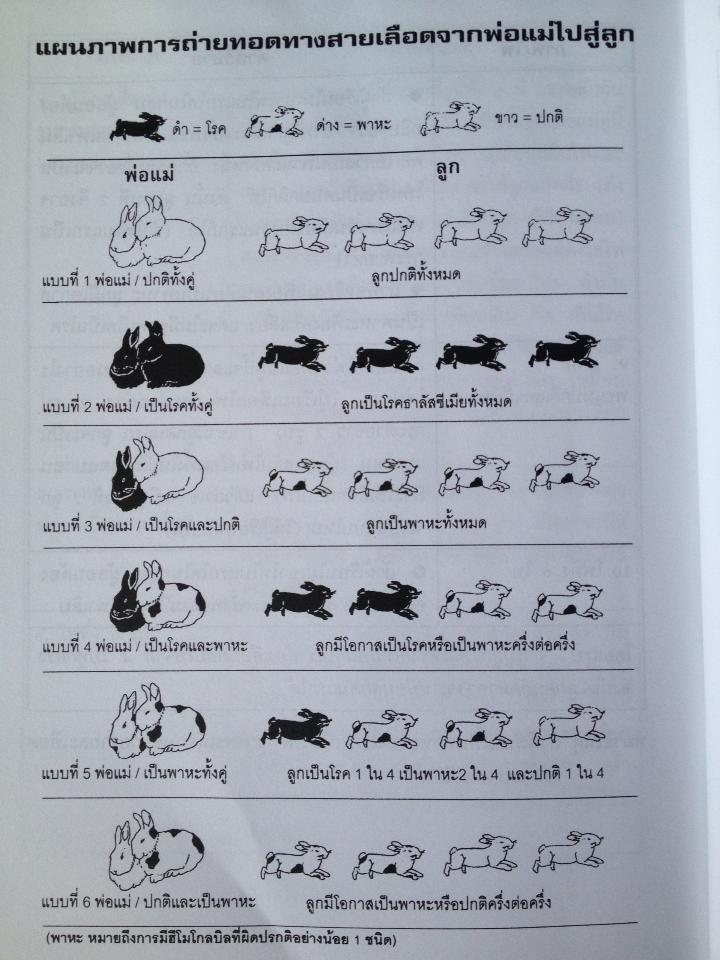 แผนภาพการถ่ายทอดทางสายเลือดจากพ่อแม่ไปสู่ลูก
ดำ = โรค ด่าง = พาหะ ขาว = ปกติ
พ่อแม่ ลูก
แบบที่ 1 พ่อแม่ / ปกติทั้งคู่ ลูกปกติทั้งหมด
แบบที่ 2 พ่อแม่ / เป็นโรคทั้งคู่ ลูกเป็นโรคธาลัสซีเมียทั้งหมด
แบบที่ 3 พ่อแม่ / เป็นโรคและปกติ ลูกเป็นพาหะทั้งหมด
แบบที่ 4 พ่อแม่ / เป็นโรคและพาหะ ลูกมีโอกาสเป็นโรคหรือเป็นพาหะครึ่งต่อครึ่ง
แบบที่ 5 พ่อแม่ / เป็นพาหะทั้งคู่ ลูกเป็นโรค 1 ใน 4 เป็นพาหะ2 ใน 4 และปกติ 1 ใน 4
แบบที่ 6 พ่อแม่ / ปกติและเป็นพาหะ ลูกมีโอกาสเป็นพาหะหรือปกติครึ่งต่อครึ่ง
(พาหะ หมายถึงการมีฮีโมโกลบิลที่ผิดปรกติอย่างน้อย 1 ชนิด)